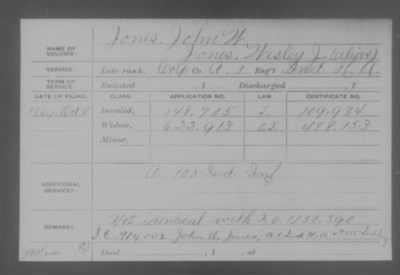 NAME OF SOLDIER:
Jones, John W.
Jones, Wesley J. (alias)
SERVICE:
Late rank, Co. A, 1 Reg't Ind. H. A.
TERM OF SERVICE:
Enlisted , 1 Discharged , 1
DATE OF FILING. CLASS. APPLICATION NO. LAW. CERTIFICATE NO.
Invalid, 148,705 109,984
Widow, 623,913 488,153
Minor,
ADDITIONAL SERVICES:
A 100 Ind. Inf
REMARKS:
Not identical with I.O. 1150,590
I.C. 984002 John W. Jones, A 1 Ind H.A.
Died , 1 , at